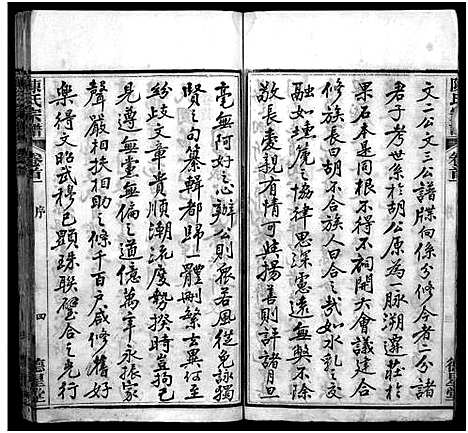 陳氏宗譜
卷首
文二公文三公譜牒向係分修今者二分諸
君子考世系於胡公原為一脉溯遷莊於
果石本是同根不得不祠開大會議建合
修族長曰胡不合族人曰合之哉如水乳之交
融如塤篪之協律思深慮遠無與不除
敬長愛親有情可共揚善則評諸月旦
毫無阿好之心辦公則飛若風從免詠獨
賢之句纂輯都歸一體刪繁去異何
紛歧文章貴順潮流度勢揆時豈狥己
見遵無黨無偏之道億萬年永振家
聲嚴相扶相助之條千百户咸修舊好
樂得文昭武穆已顕珠聯璧合之先行
陳氏宗譜
卷首
序
四
德星堂